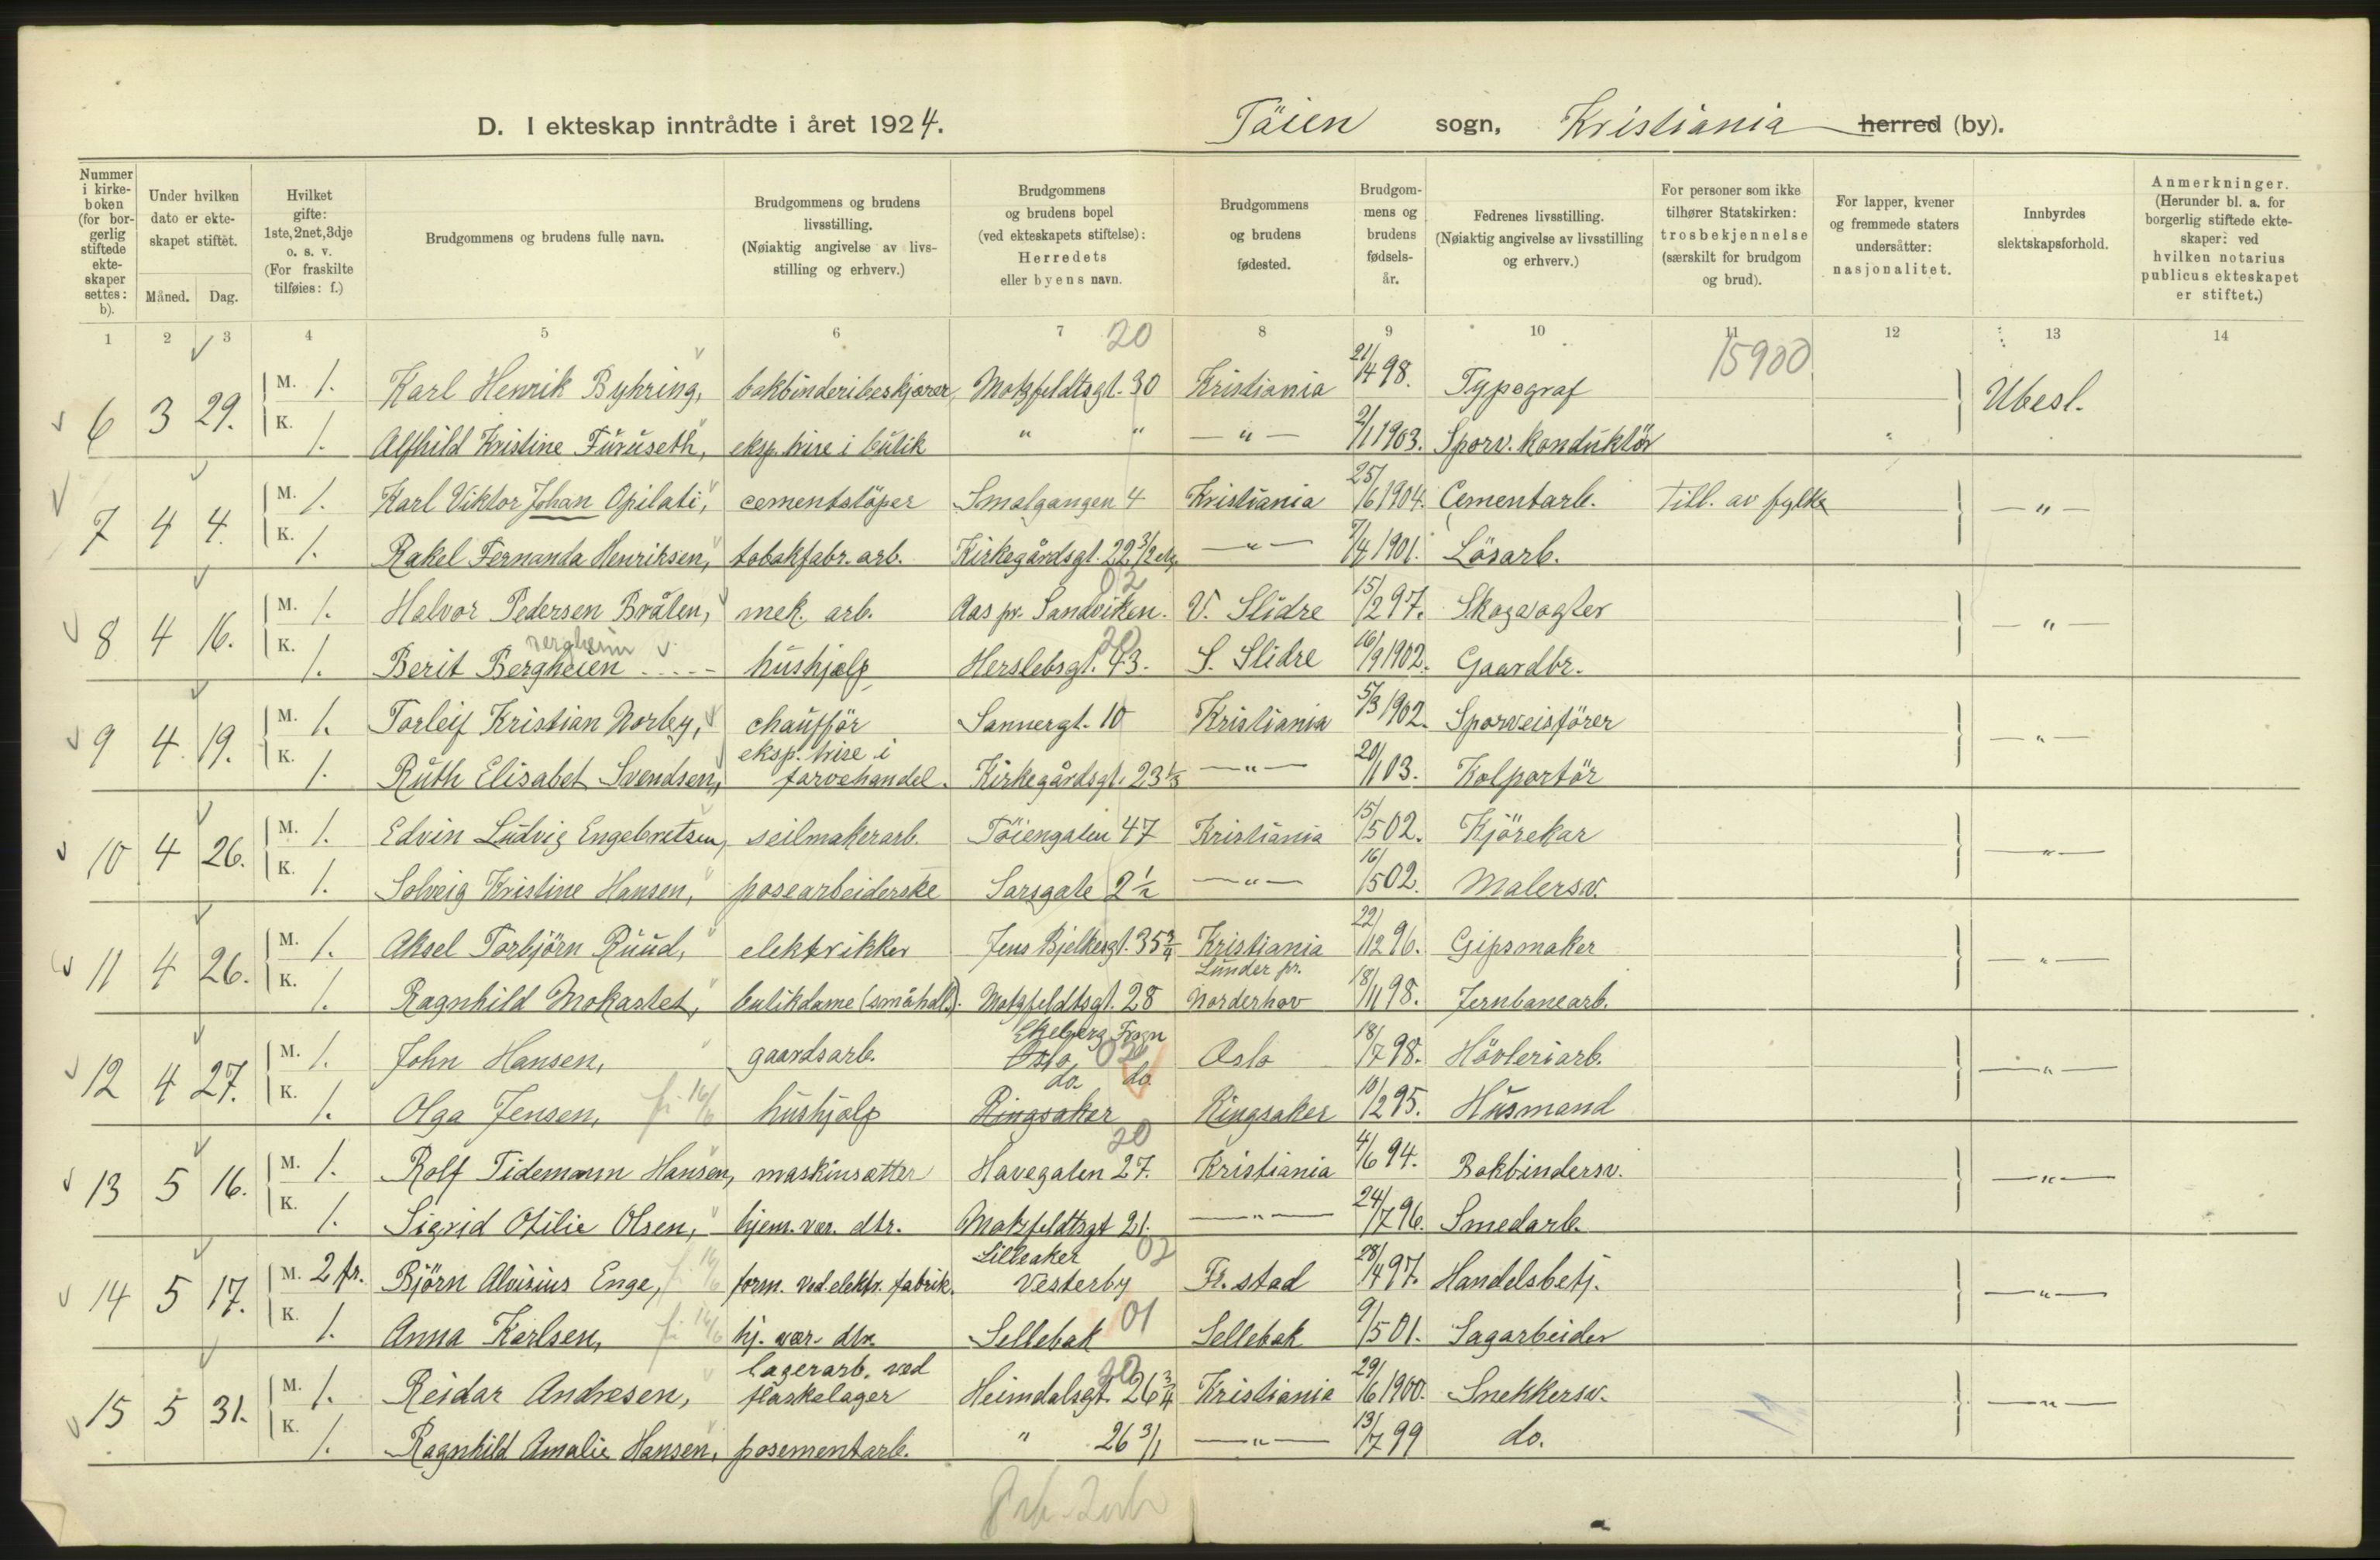 D. I ekteskap inntrådte i året 1924. Töien sogn, Kristiania herred (by).
Nummer i kirkeboken (for borgerlig stiftede ekteskaper settes: b). Under hvilken dato er ekteskapet stiftet. Måned. Dag. Hvilket gifte: 1ste, 2net, 3dje o. s. v. (For fraskilte tilføies: f.) Brudgommens og brudens fulle navn. Brudgommens og brudens livsstilling. (Nøiaktig angivelse av livsstilling og erhverv.) Brudgommens og brudens bopel (ved ekteskapets stiftelse): Herredets eller byens navn. Brudgommens og brudens fødested. Brudgommens og brudens fødselsår. Fedrenes livsstilling. (Nøiaktig angivelse av livsstilling og erhverv.) For personer som ikke tilhører Statskirken: trosbekjennelse (særskilt for brudgom og brud). For lapper, kvener og fremmede staters undersåtter: nasjonalitet. Innbyrdes slektskapsforhold. Anmerkninger. (Herunder bl. a. for borgerlig stiftede ekteskaper: ved hvilken notarius publicus ekteskapet er stiftet.)
1 2 3 4 5 6 7 8 9 10 11 12 13 14
20 15900
6 3 29. M. 1. Karl Henrik Byhring, bokbinderibeskjærer Motzfeldtsgt. 30 Kristiania 21/4 98. Typograf Ubesl.
K. 1. Alfhild Kristine Furuseth, eksp. trise i butik " " — " — 2/1 1903. Sporv. konduktör
7 4 4. M. 1. Karl Viktor Johan Opilati, cementstöper Smalgangen 4 Kristiania 25/6 1904. Cementarb. Till. av fylke — " —
K. 1. Rakel Fernanda Henriksen, tobakfabr. arb. Kirkegårdsgt. 22 3/2 etg. — " — 7/4 1901. Lösarb.
02
8 4 16. M. 1. Halvor Pedersen Bråten, mek. arb. Aas pr. Sandviken. V. Slidre 15/2 97. Skogvogter — " —
Bergheim 20
K. 1. Berit Bergheien hushjælp Herslebsgt. 43. S. Slidre 16/9 1902. Gaardbr.
9 4 19. M. 1. Torleif Kristian Norby, chaufför Sannergt. 10 Kristiania 5/3 1902. Sporveisförer — " —
K. 1. Ruth Elisabet Svendsen, eksp. trise i farvehandel. Kirkegårdsgt. 23 1/3 — " — 20/1 03. Kolportör
10 4 26. M. 1. Edvin Ludvig Engebretsen, seilmakerarb. Töiengaten 47 Kristiania 15/5 02. Kjörekar — " —
K. 1. Solveig Kristine Hansen, posearbeiderske Sarsgate 2 1/2 — " — 16/5 02. Malersv.
11 4 26. M. 1. Aksel Torbjörn Ruud, elektrikker Jens Bjelkesgt. 35 3/4 Kristiania 22/12 96. Gipsmaker — " —
K. 1. Ragnhild Mokastet, butikdame (småhdl.). Motzfeldtsgt. 28 Lunder pr. Norderhov 18/11 98. Jernbanearb.
Ekeberg Frogn
12 4 27. M. 1. John Hansen, gaardsarb. Oslo 02 Oslo 18/7 98. Hövleriarb. — " —
do. do.
K. 1. Olga Jensen, fr. 16/6 hushjælp Ringsaker Ringsaker 10/2 95. Husmand
20
13 5 16. M. 1. Rolf Tidemann Hansen, maskinsætter Havegaten 27. Kristiania 4/6 94. Bokbindersv. — " —
K. 1. Sigrid Otilie Olsen, hjem. vær. dtr. Motzfeldtsgt 21. — " — 24/7 96. Smedarb.
Lilleaker 02
14 5 17. M. 2 fr. Björn Aloisius Enge, form. ved elektr. fabrik. Vesterby Fr.stad 28/4 97. Handelsbetj. — " —
K. 1. Anna Karlsen, fr. 16/6 hj. vær. dtr. Sellebak 01 Sellebak 9/5 01. Sagarbeider
20
15 5 31. M. 1. Reidar Andresen, lagerarb. ved flaskelager Heimdalsgt. 26 3/4 Kristiania 29/6 1900. Snekkersv. — " —
K. 1. Ragnhild Amalie Hansen, posementarb. " 26 3/1 — " — 13/7 99 do.